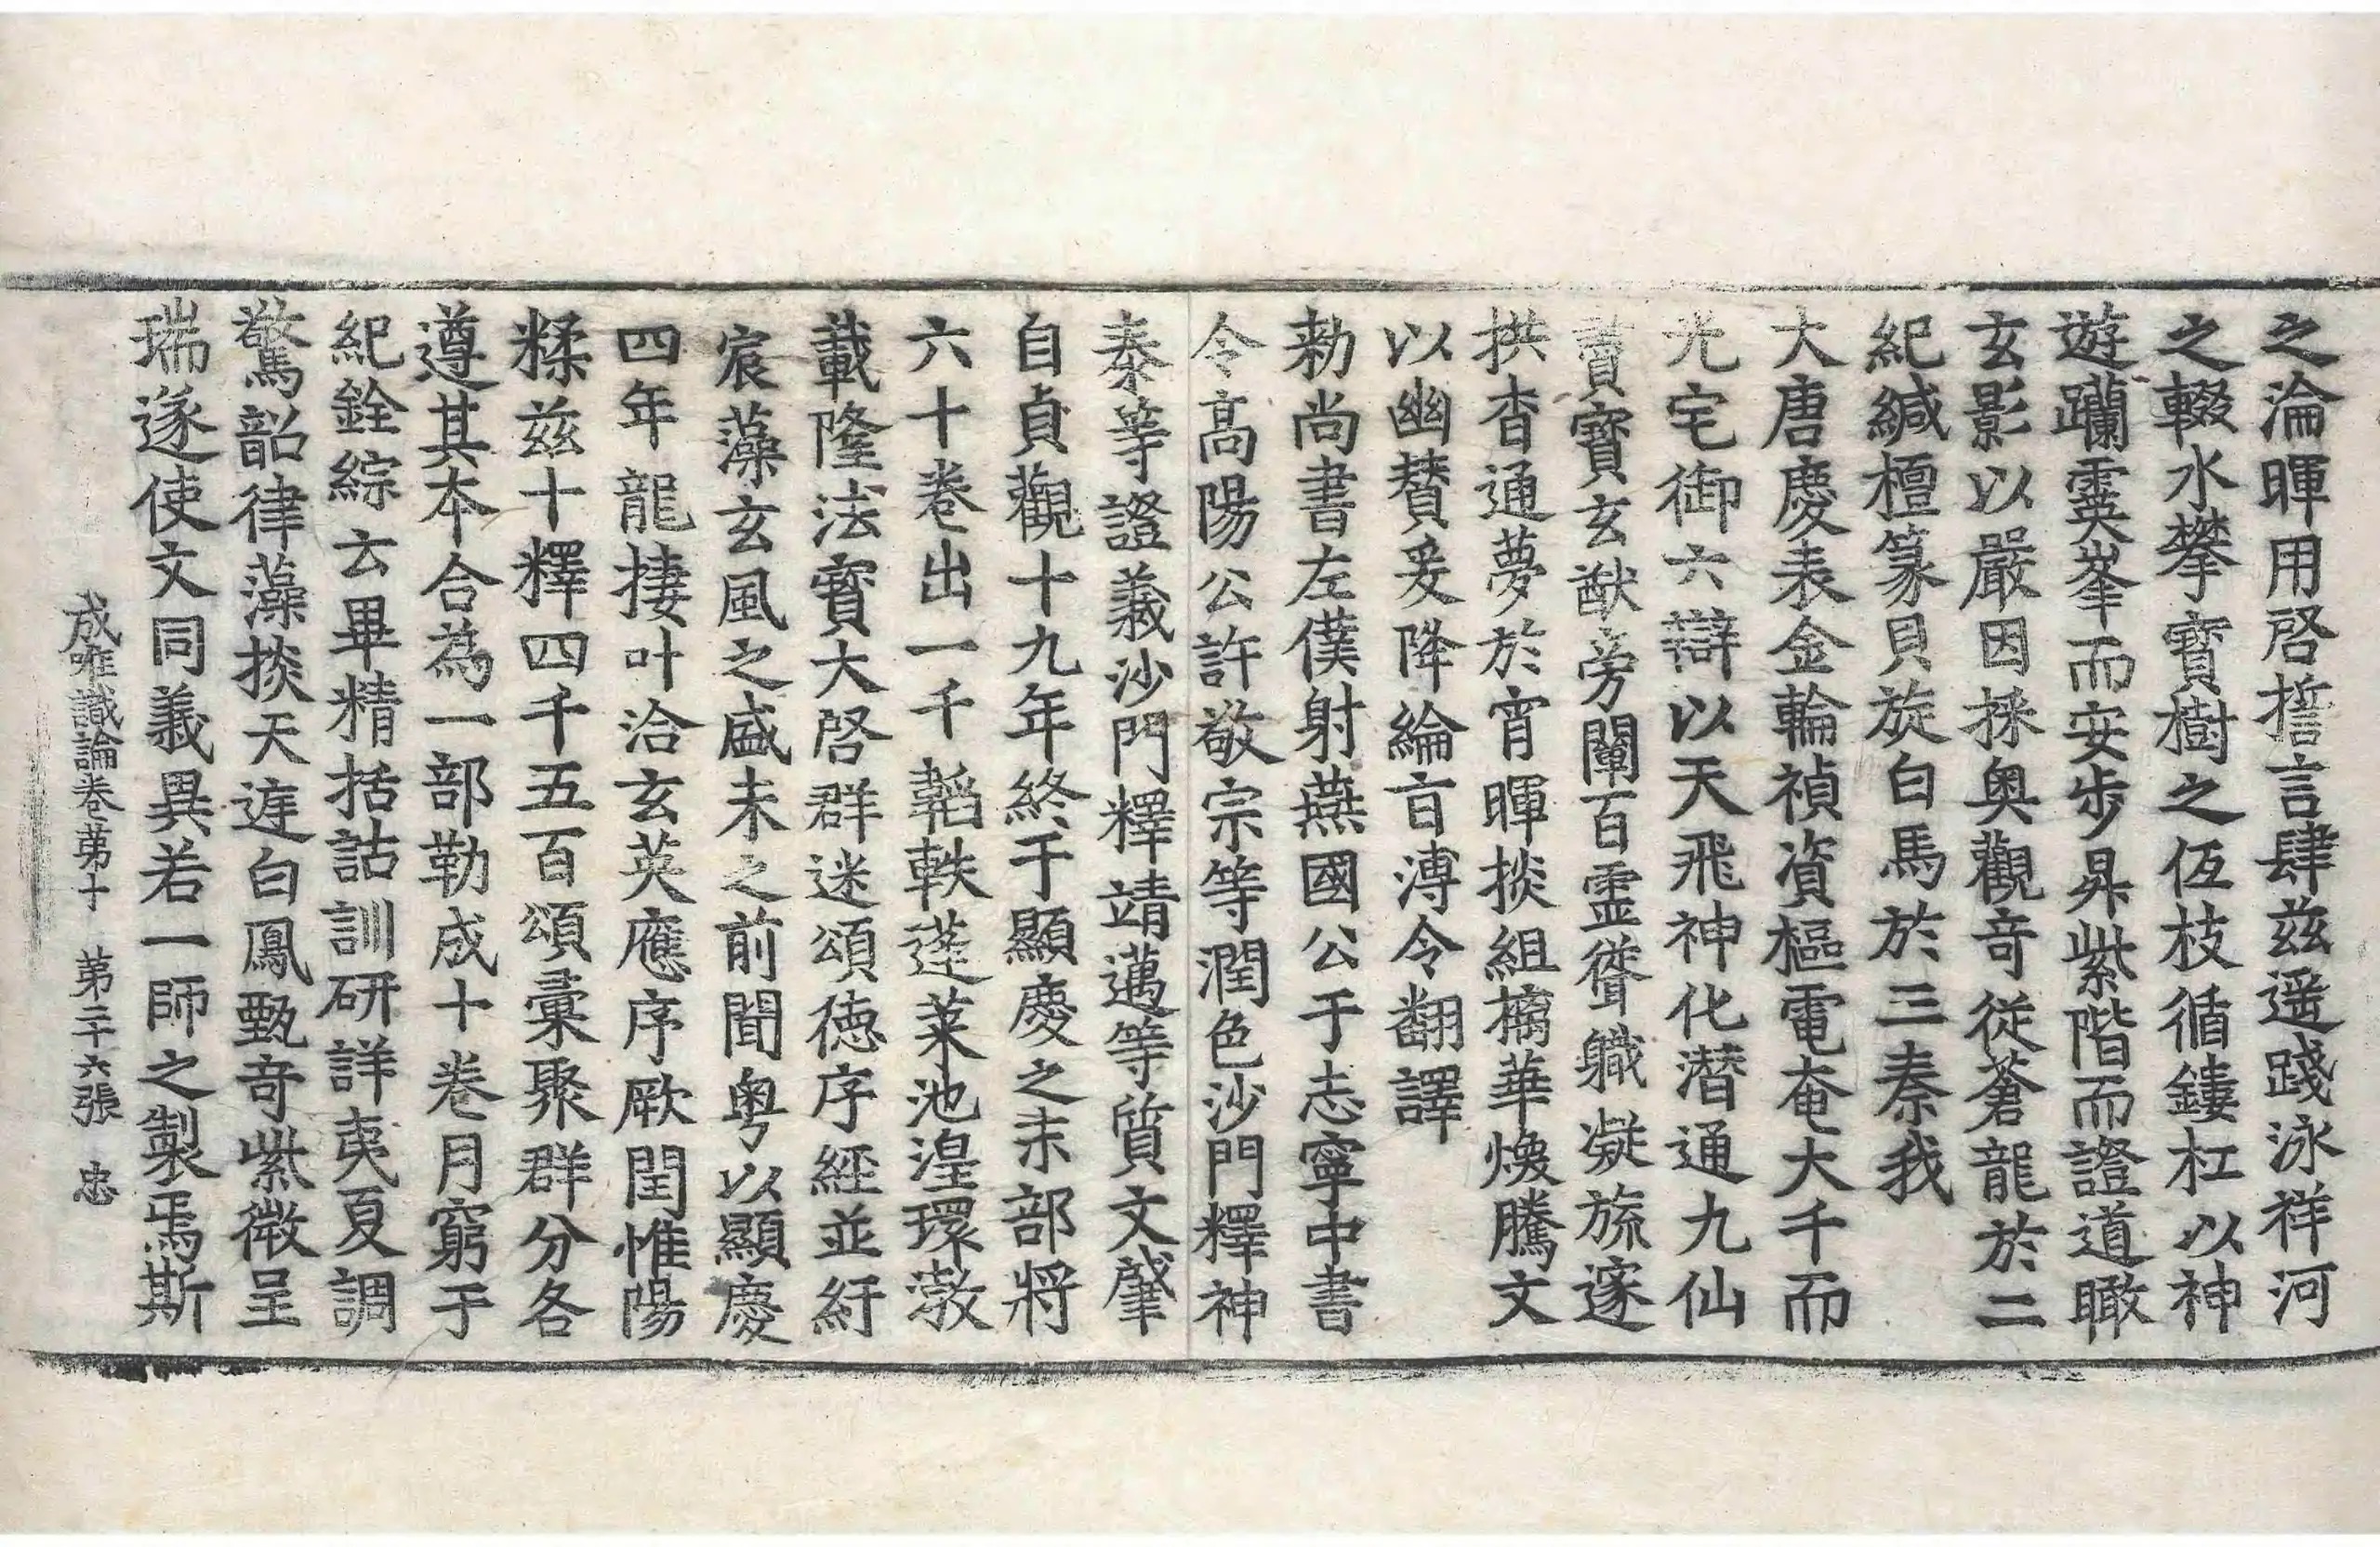 之淪暉用啓誓言肆兹遥踐泳祥河
之輟水攀寶樹之佰枝循鏤杠以神
遊躡霊峯而安步昇紫階而證道瞰
玄影以嚴因採奥觀奇從蒼龍於二
紀緘檀篆貝旋白馬於三秦我
大唐慶表金輪禎資樞電奄大千而
光宅御六辯以天飛神化潜通九仙
賮寶玄猷旁闡百霊聳職凝旒邃
拱杳通夢於宵暉掞組摛華煥騰文
以幽賛爰降綸㫖溥令翻譯
勑尚書左僕射燕國公于志寧中書
令高陽公許敬宗等潤色沙門釋神
泰等證義沙門釋靖邁等質文肇
自貞觀十九年終于顯慶之末部將
六十卷出一千韜軼蓬莱池湟環渤
載隆法寶大啓群迷頌德序經並紆
宸藻玄風之盛未之前聞粤以顯慶
四年龍捿叶洽玄英應序厥閏惟陽
糅兹十釋四千五百頌彙聚群分各
遵其本合為一部勒成十卷月窮于
紀銓綜云畢精括詁訓研詳夷夏調
驚韶律藻掞天遅白鳳甄奇紫微呈
瑞遂使文同義異若一師之製焉斯
成唯識論卷第十 第二十六張 忠